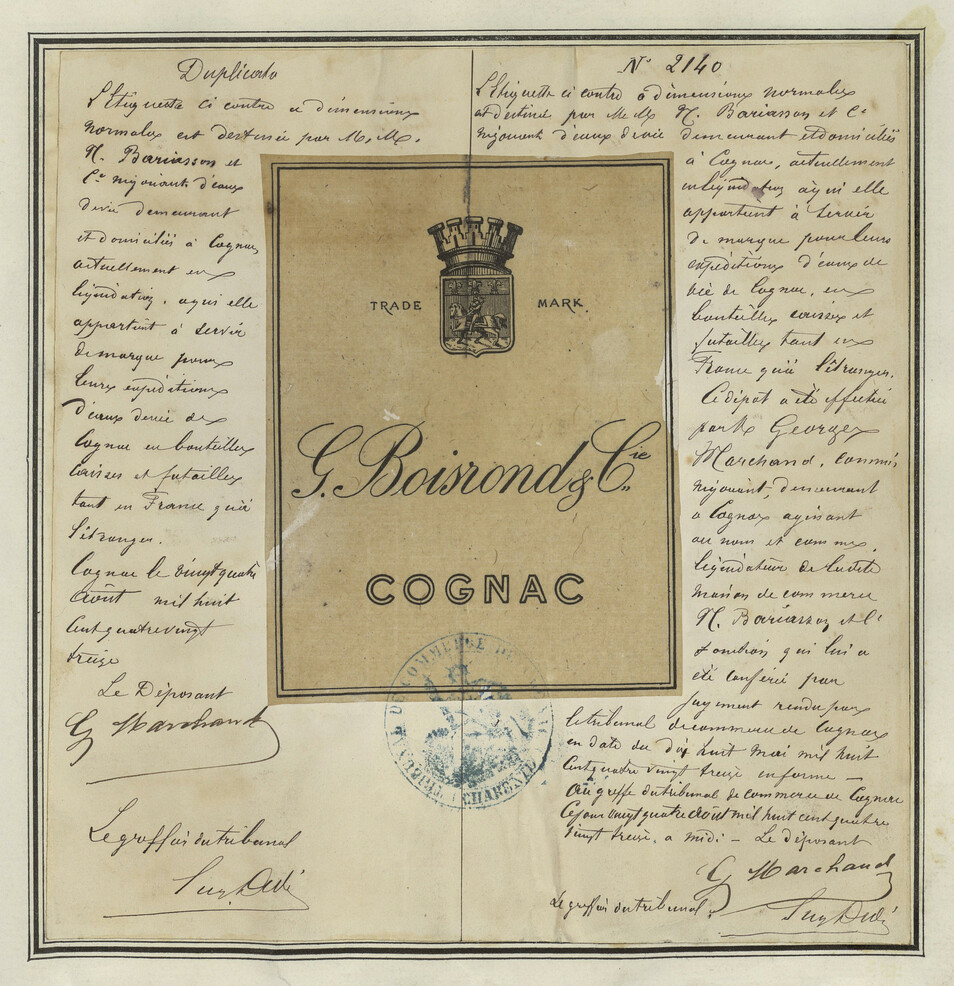 Duplicata
L'Etiquette ci contre a dimensions
normales est destinée par M.M.
N. Bariasson et
Cie négociants d'eaux
de vie demeurant
et domiciliés à Cognac
actuellement en
liquidation, a qui elle
appartient à servir
de marque pour
leurs expéditions
d'eaux de vie de
Cognac en bouteilles
caisses et futailles
tant en France qu'à
l'étranger.
Cognac le vingt quatre
août mil huit
cent quatre vingt
treize
Le Déposant
G Marchand
Le greffier du tribunal
N° 2140
L'Etiquette ci contre à dimensions normales
est destiné par M M N. Bariasson et Cie
négociants d'eaux de vie demeurant et domiciliés
à Cognac, actuellement
en liquidation à qui elle
appartient à servir
de marque pour leurs
expéditions d'eaux de
vie de Cognac, en
bouteilles caisses et
futailles tant en
France qu'à l'étranger.
Ce dépot a été effectué
par M Georges
Marchand, commis
négociant, demeurant
a Cognac agissant
au nom et comme
liquidateur de ladite
maison de commerce
N. Bariasson et Cie
fonction qui lui a
été conférée par
jugement rendu par
le tribunal de commerce de Cognac
en date du dix huit mai mil huit
cent quatre vingt treize enforme —
Au greffe du tribunal de commerce de Cognac
Ce jour vingt quatre août mil huit cent quatre
vingt treize, a midi — Le déposant
G Marchand
Le greffier du tribunal.
TRADE MARK.
G. Boisrond & Cie
COGNAC
TRIBUNAL DE COMMERCE DE
CHARENTE